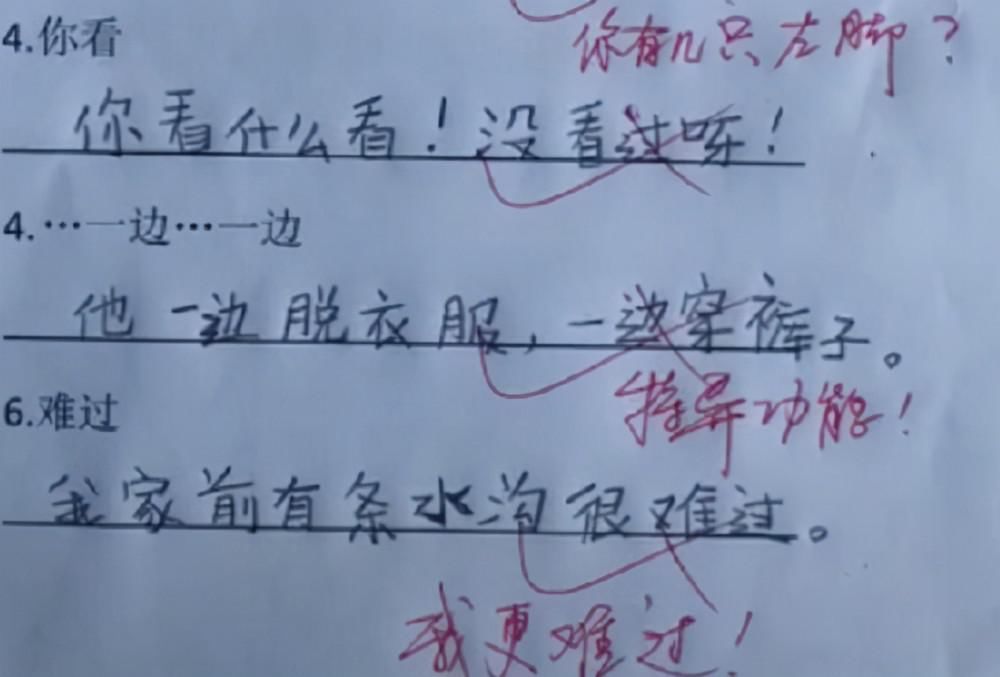 你有几只左脚?
4.你看
你看什么看!没看过呀!
4.…一边…一边
他一边脱衣服,一边穿裤子。
特异功能!
6.难过
我家前有条水沟很难过。
我更难过!